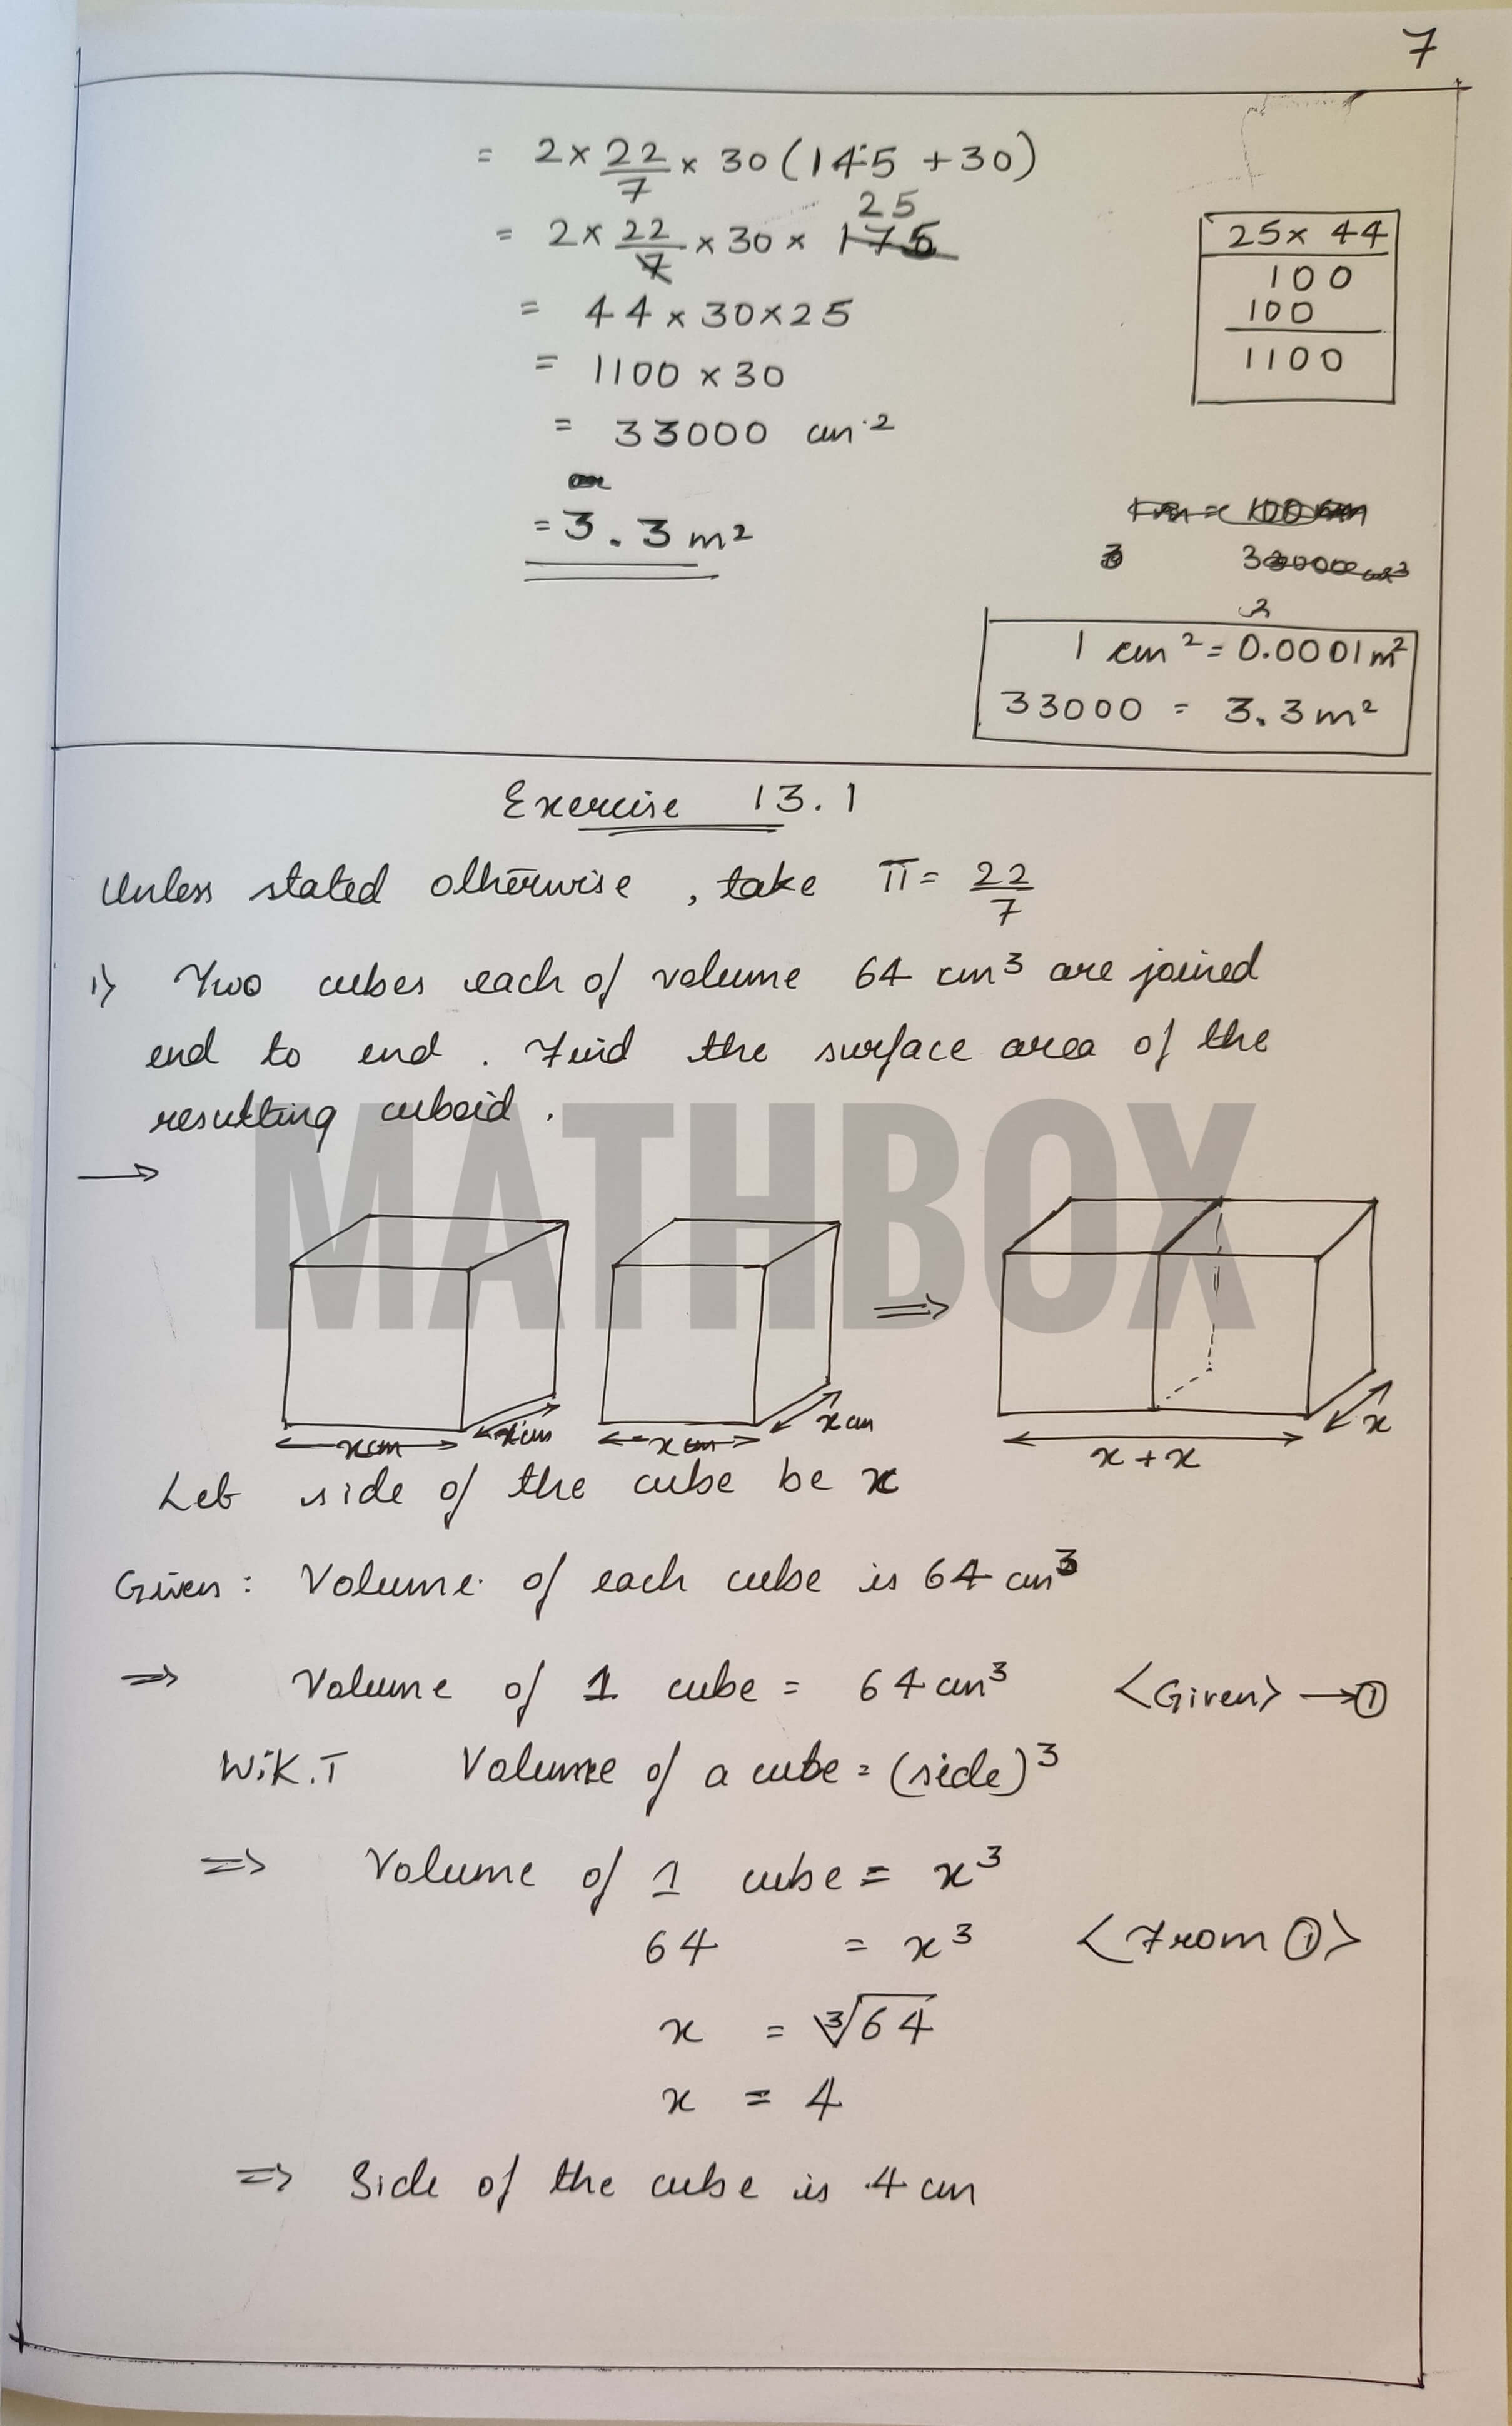 7
= 2 × 22/7 × 30 (145 + 30)
25
= 2 × 22/7 × 30 × 175
= 44 × 30 × 25
= 1100 × 30
= 33000 cm²
or
= 3.3 m²
25 × 44
100
100
1100
1 cm² = 0.0001 m²
33000 = 3.3 m²
Exercise 13.1
Unless stated otherwise, take π = 22/7
1) Two cubes each of volume 64 cm³ are joined
end to end. Find the surface area of the
resulting cuboid.
→
MATHBOX
⇒
x cm x cm x cm x cm x + x x
Let side of the cube be x
Given: Volume of each cube is 64 cm³
⇒ Volume of 1 cube = 64 cm³ <Given> → ①
W.K.T Volume of a cube = (side)³
⇒ Volume of 1 cube = x³
64 = x³ <From ①>
x = ∛64
x = 4
⇒ Side of the cube is 4 cm